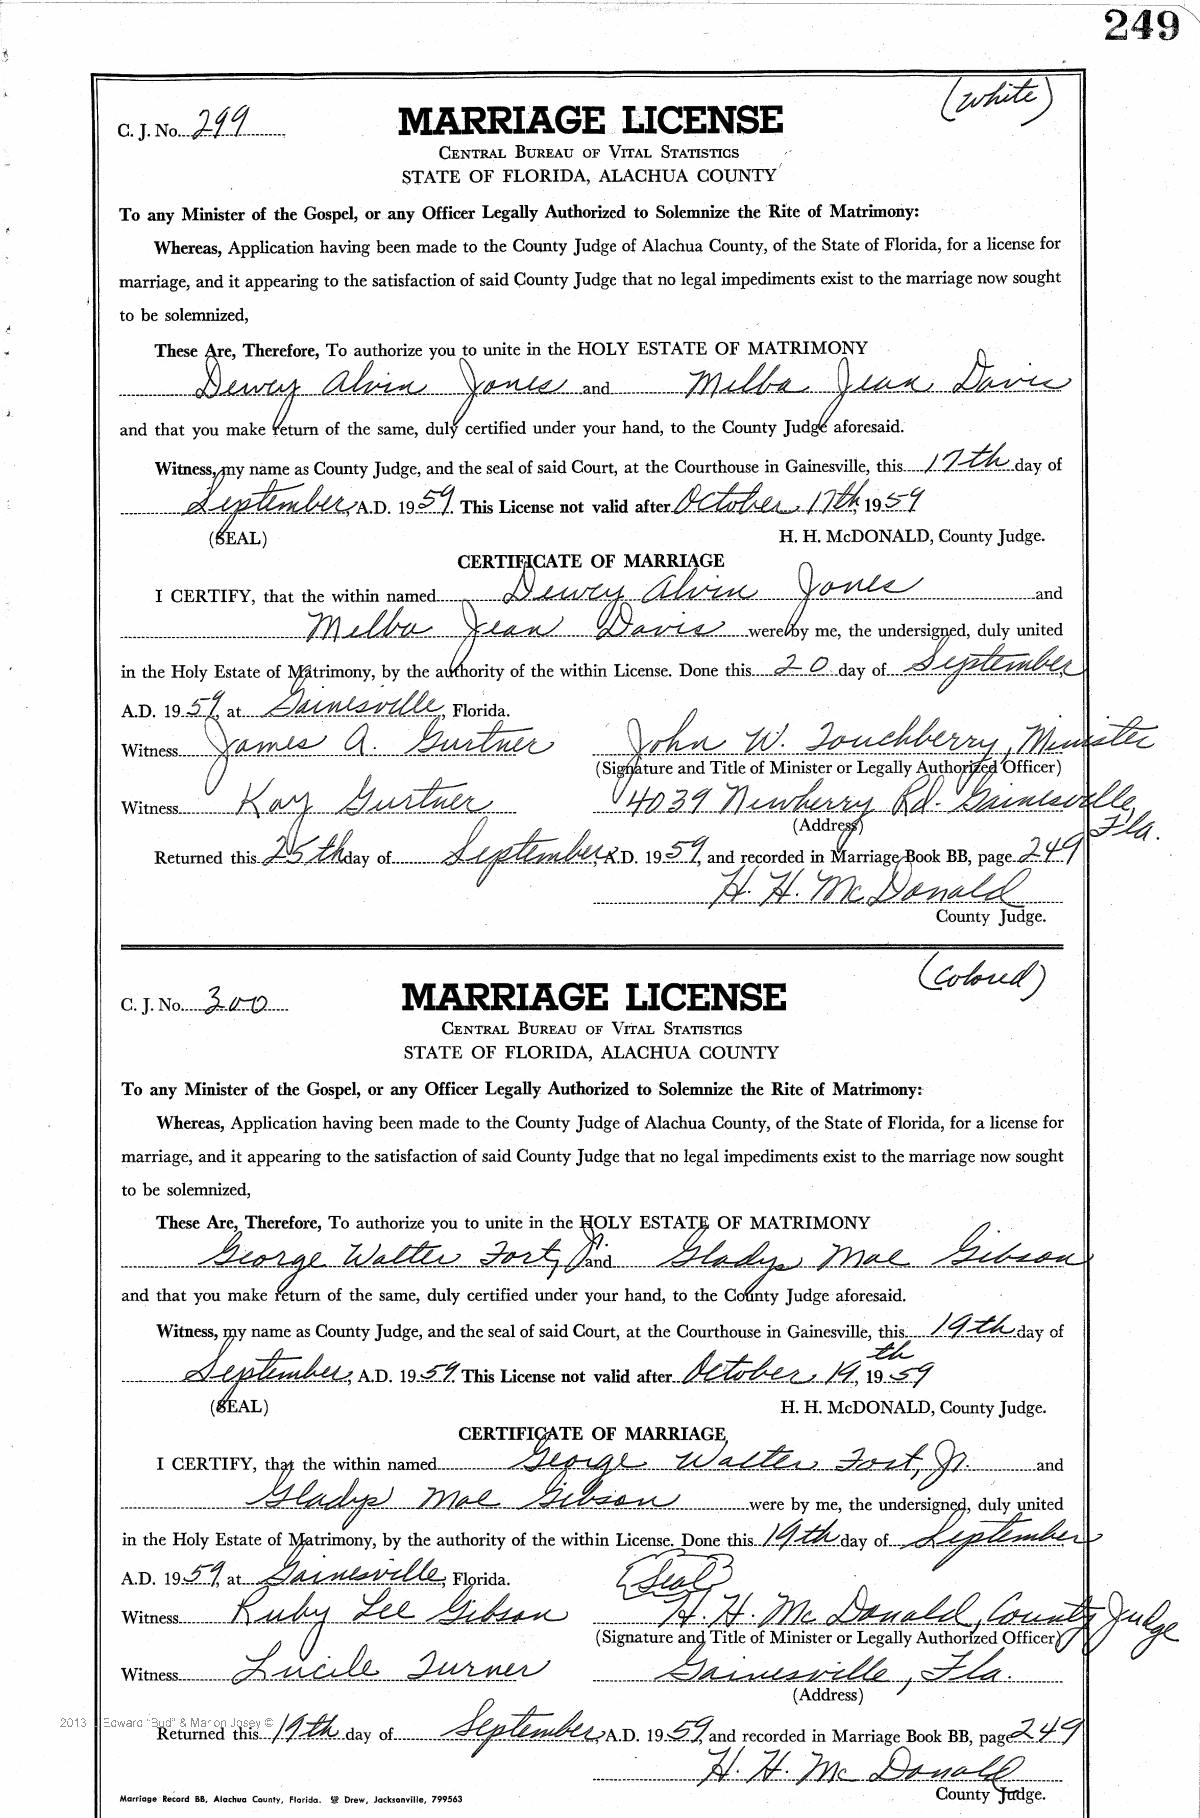 249
(White)
C. J. No. 299
MARRIAGE LICENSE
CENTRAL BUREAU OF VITAL STATISTICS
STATE OF FLORIDA, ALACHUA COUNTY
To any Minister of the Gospel, or any Officer Legally Authorized to Solemnize the Rite of Matrimony:
Whereas, Application having been made to the County Judge of Alachua County, of the State of Florida, for a license for
marriage, and it appearing to the satisfaction of said County Judge that no legal impediments exist to the marriage now sought
to be solemnized,
These Are, Therefore, To authorize you to unite in the HOLY ESTATE OF MATRIMONY
Dewey Alvin Jones and Melba Jean Davis
and that you make return of the same, duly certified under your hand, to the County Judge aforesaid.
Witness, my name as County Judge, and the seal of said Court, at the Courthouse in Gainesville, this 17th day of
September, A.D. 1959. This License not valid after October 17th, 1959
(SEAL) H. H. McDONALD, County Judge.
CERTIFICATE OF MARRIAGE
I CERTIFY, that the within named Dewey Alvin Jones and
Melba Jean Davis were by me, the undersigned, duly united
in the Holy Estate of Matrimony, by the authority of the within License. Done this 20 day of September,
A.D. 1959, at Gainesville, Florida.
Witness James A. Gurtner John W. Touchberry, Minister
(Signature and Title of Minister or Legally Authorized Officer)
Witness Kay Gurtner 4039 Newberry Rd. Gainesville,
Fla.
(Address)
Returned this 25th day of September, A.D. 1959, and recorded in Marriage Book BB, page 249
H. H. McDonald
County Judge.
(Colored)
C. J. No. 300
MARRIAGE LICENSE
CENTRAL BUREAU OF VITAL STATISTICS
STATE OF FLORIDA, ALACHUA COUNTY
To any Minister of the Gospel, or any Officer Legally Authorized to Solemnize the Rite of Matrimony:
Whereas, Application having been made to the County Judge of Alachua County, of the State of Florida, for a license for
marriage, and it appearing to the satisfaction of said County Judge that no legal impediments exist to the marriage now sought
to be solemnized,
These Are, Therefore, To authorize you to unite in the HOLY ESTATE OF MATRIMONY
George Walter Fort, Jr. and Gladys Mae Gibson
and that you make return of the same, duly certified under your hand, to the County Judge aforesaid.
Witness, my name as County Judge, and the seal of said Court, at the Courthouse in Gainesville, this 19th day of
September, A.D. 1959. This License not valid after October 19th, 1959
(SEAL) H. H. McDONALD, County Judge.
CERTIFICATE OF MARRIAGE
I CERTIFY, that the within named George Walter Fort, Jr. and
Gladys Mae Gibson were by me, the undersigned, duly united
in the Holy Estate of Matrimony, by the authority of the within License. Done this 19th day of September
A.D. 1959, at Gainesville, Florida. (Seal)
Witness Ruby Lee Gibson H. H. McDonald, County Judge
(Signature and Title of Minister or Legally Authorized Officer)
Witness Lucile Turner Gainesville, Fla.
(Address)
2013 Edward "Bud" & Marion Josey ©
Returned this 19th day of September, A.D. 1959, and recorded in Marriage Book BB, page 249
H. H. McDonald
County Judge.
Marriage Record BB, Alachua County, Florida. Drew, Jacksonville, 799563